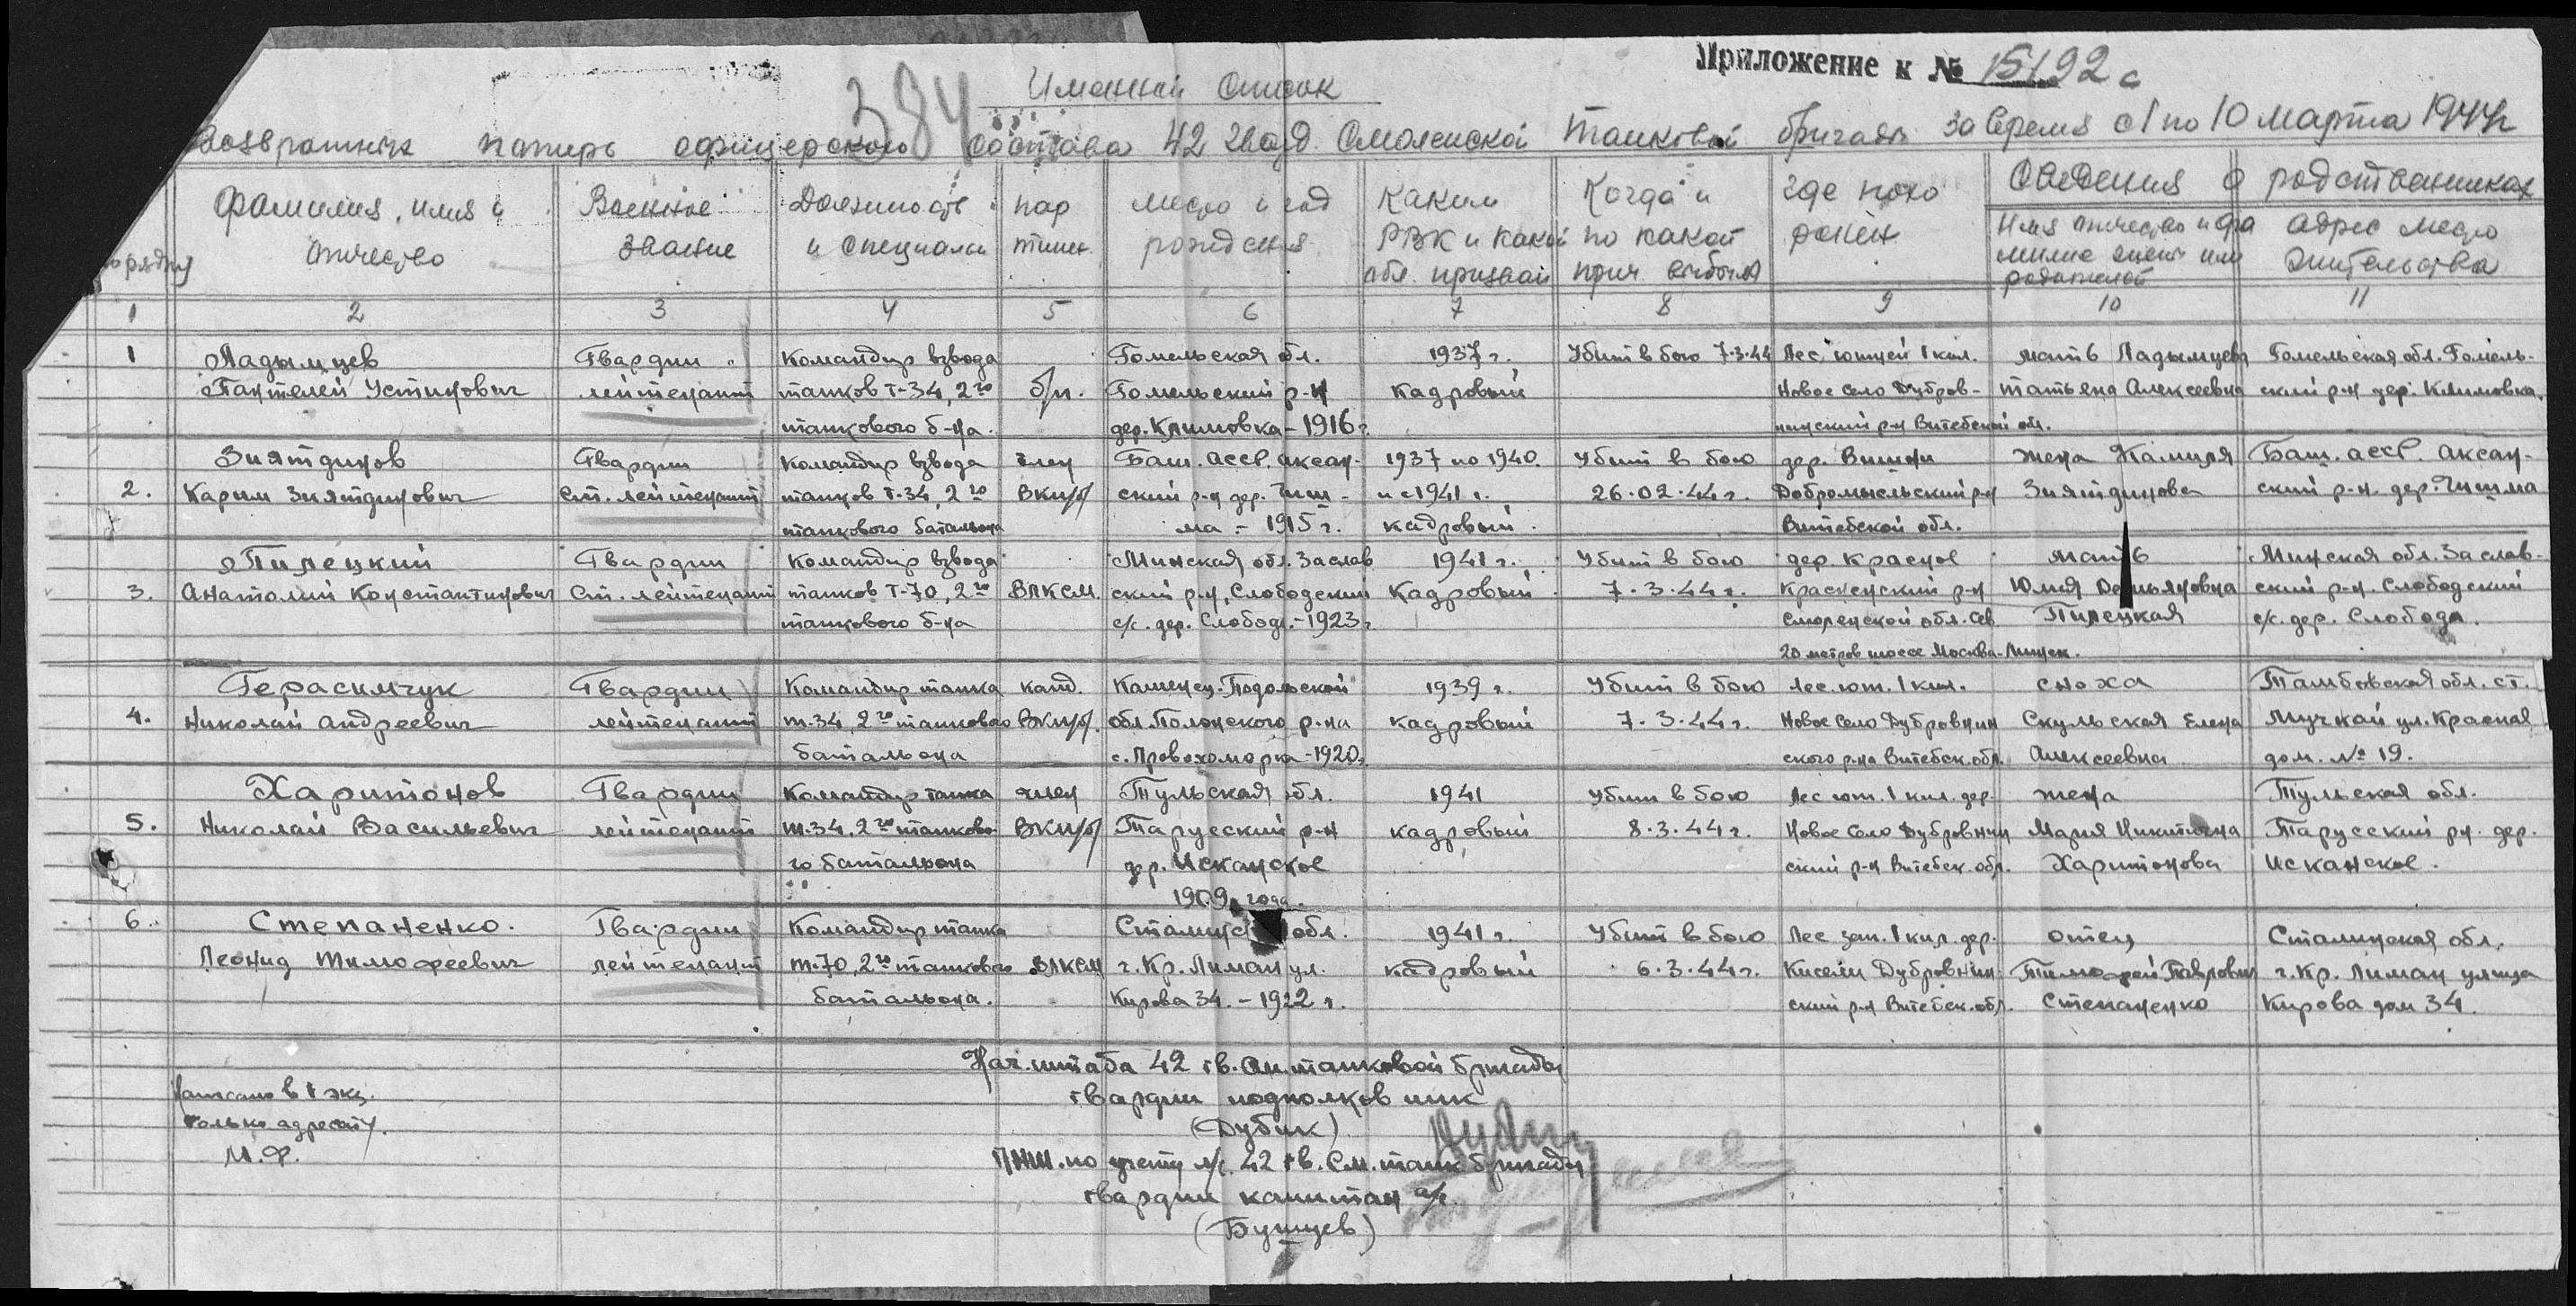 Приложение к № 15192с
384
Именной список
безвозвратных потерь офицерского состава 42 гвард. Смоленской танковой бригады за время с 1 по 10 марта 1944г
порядку
Фамилия, имя и отчество
Военное звание
Должность и специальн
пар тийн.
место и год рождения
Каким РВК и какой обл. призван
Когда и по какой прич. выбыл
где похо ронен
Сведения о родственниках
Имя отчество и фа милие жены или родителей
адрес место жительства
1 2 3 4 5 6 7 8 9 10 11
1 Ладымцев Гвардии Командир взвода Гомельская обл. 1937 г. Убит в бою 7.3.44 Лес южней 1 кил. мать Ладымцева Гомельская обл. Гомель-
Пантелей Устинович лейтенант танков Т-34, 2го б/п. Гомельский р-н кадровый Новое село Дубров- Татьяна Алексеевна ский р-н дер. Климовка.
танкового б-на. дер. Климовка - 1916 г. нинский р-н Витебской обл.
Зиятдинов Гвардии Командир взвода член Баш. АССР. Аксан- 1937 по 1940. Убит в бою дер. Вишни жена Камиля Баш. АССР. Аксан-
2. Карим Зиятдинович ст. лейтенант танков Т-34, 2го ВКП/б/ ский р-н дер. Чиш- и с 1941 г. 26.02.44 г. Добромысльский р-н Зиятдинова ский р-н. дер. Чишма
танкового батальона ма - 1915 г. кадровый. Витебской обл.
Пилецкий Гвардии Командир взвода Минская обл. Заслав 1941 г. Убит в бою дер. Красное мать Минская обл. Заслав-
3. Анатолий Константинович ст. лейтенант танков Т-70, 2го ВЛКСМ. ский р-н, Слободский кадровый 7.3.44 г. Красненский р-н Юлия Демьяновна ский р-н. Слободский
танкового б-на с/с. дер. Слобода. - 1923 г. Смоленской обл. сев Пилецкая с/с. дер. Слобода.
20 метров шоссе Москва-Минск.
Герасимчук Гвардии Командир танка канд. Каменец-Подольской 1939 г. Убит в бою Лес. юж. 1 кил. сноха Тамбовская обл. ст.
4. Николай Андреевич лейтенант т-34, 2го танкового ВКП/б/. обл. Полонского р-на кадровый 7.3.44 г. Новое село Дубровнин Скульская Елена Мучкай ул. Красная
батальона с. Провохоморка - 1920 г. ского р-на Витебск. обл. Алексеевна дом. № 19.
Харитонов Гвардии Командир танка член Тульская обл. 1941 Убит в бою Лес юж. 1 кил. дер. жена Тульская обл.
5. Николай Васильевич лейтенант т-34, 2го танково- ВКП/б/ Тарусский р-н кадровый 8.3.44 г. Новое Село Дубровнин Мария Никитична Тарусский р-н. дер.
го батальона дер. Исканское ский р-н Витебск. обл. Харитонова Исканское.
1909 года.
6. Степаненко. Гвардии Командир танка Сталинск обл. 1941 г. Убит в бою Лес зап. 1 кил. дер. отец Сталинская обл.
Леонид Тимофеевич лейтенант т-70, 2го танкового ВЛКСМ г. Кр. Лиман ул. кадровый 6.3.44 г. Кисели Дубровнин- Тимофей Павлович г. Кр. Лиман улица
батальона. Кирова 34. - 1922 г. ский р-н Витебск. обл. Степаненко Кирова дом 34.
Нач. штаба 42 гв. См. танковой бригады
гвардии подполковник
(Дубик)
ПНШ. по учету л/с. 42 гв. См. танк бригады
гвардии капитан а/с
(Бушуев)
Написано в 1 экз.
только адресату.
М.Ф.